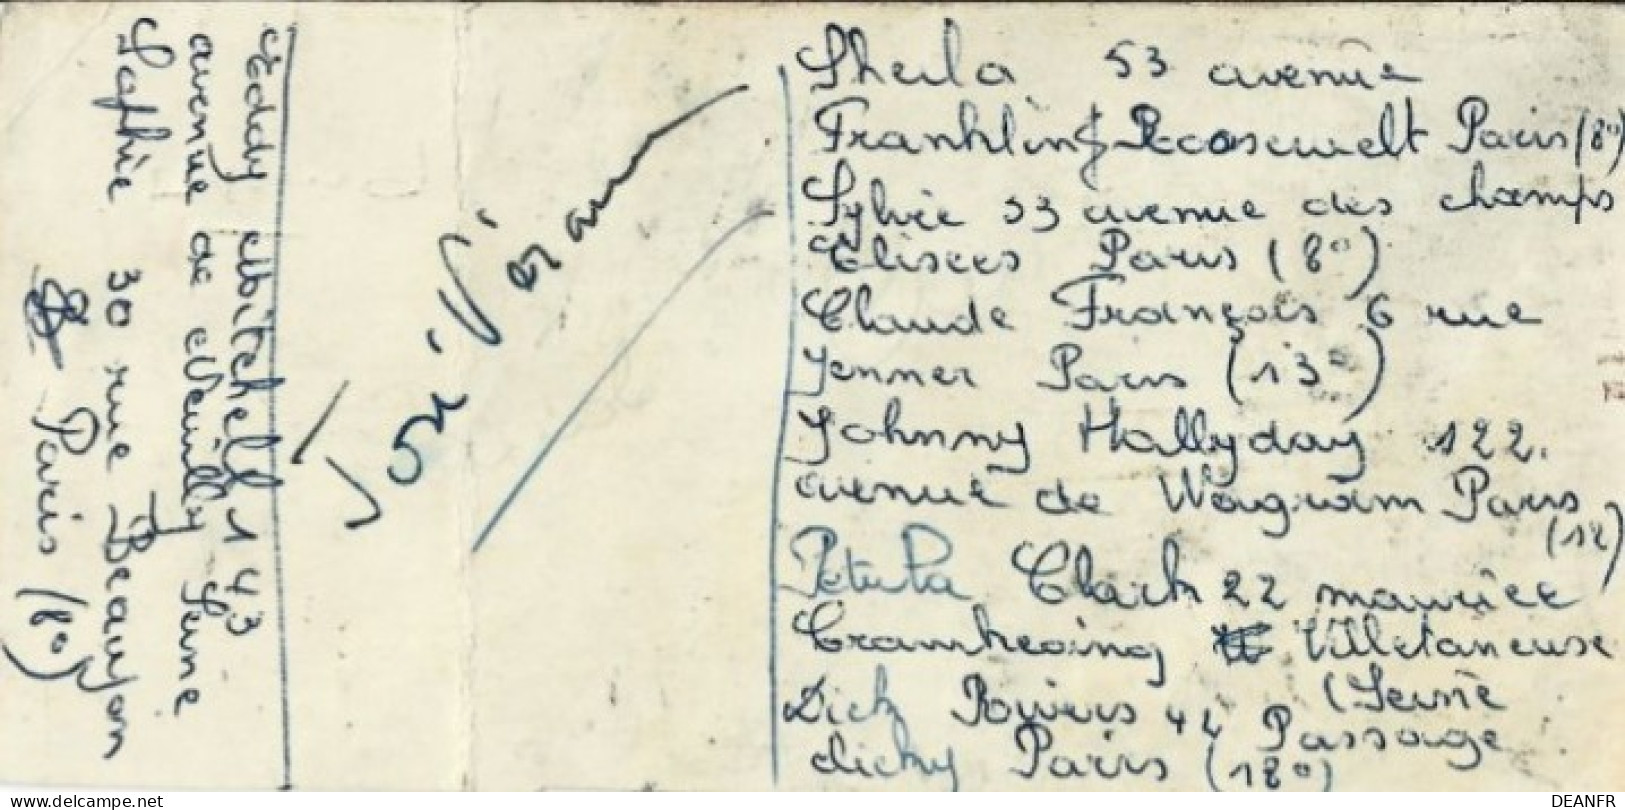 Eddy Mitchell 143
avenue de Neuilly Seine
Sophie 30 rue Beaujon
Paris (8°)
Sheila 53 avenue
Franklin Roosewelt Paris (8°)
Sylvie 53 avenue des champs
Elisees Paris (8°)
Claude François 6 rue
Jenner Paris (13°)
Johnny Hallyday 122.
avenue de Wagram Paris
(12)
Petula Clark 22 maurice
Villetaneuse
Dick Rivers 44 Passage (Seine
clichy Paris (18°)
DELCAMPE.NET
DEANFR